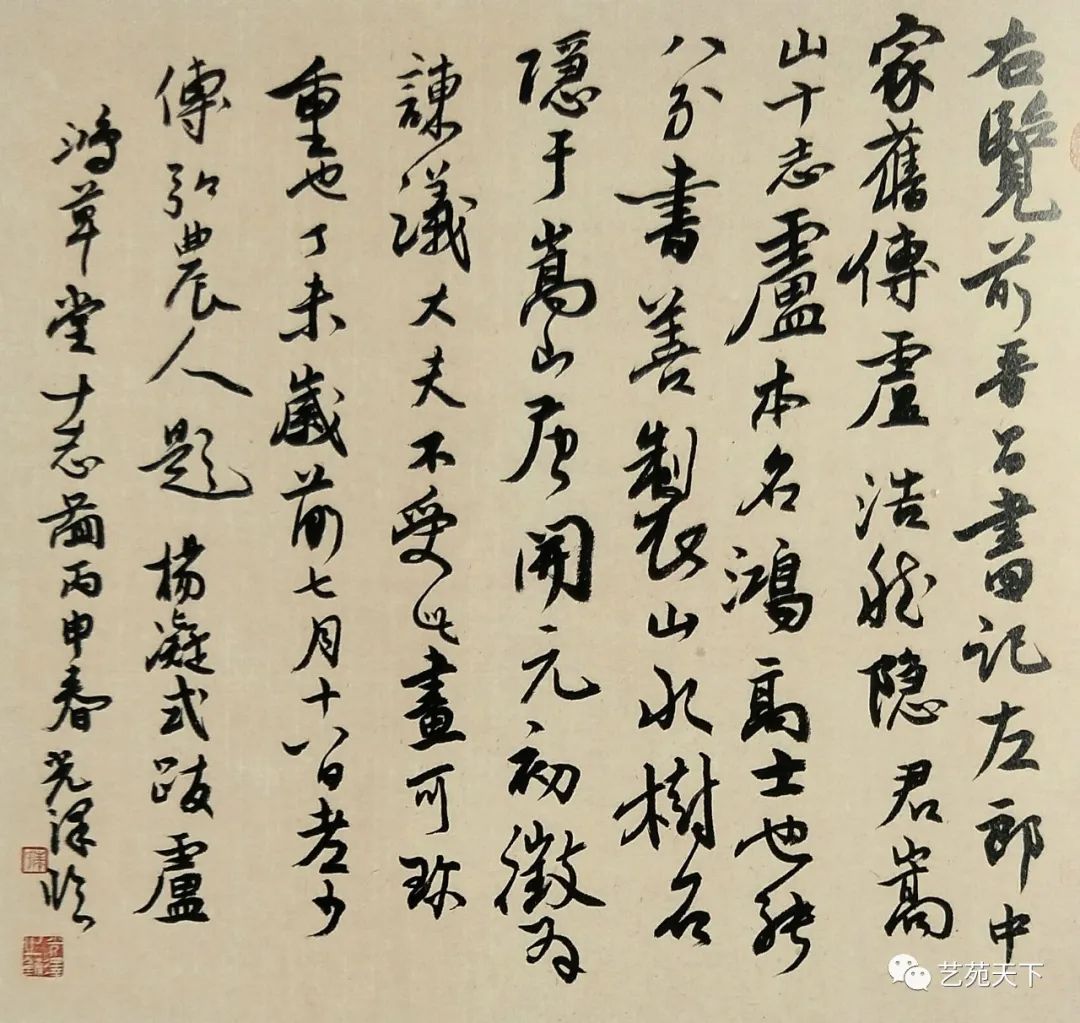 右覽前晉昌書記左郎中
家舊傳盧浩然隱君嵩
山十志盧本名鴻高士也能
八分書善製山水樹石
隱于嵩山唐開元初徵為
諫議大夫不受此畫可珍
重也丁未歲前七月十八日老少
傅弘農人題 楊凝式跋盧
鴻草堂十志圖丙申春光澤臨
艺苑天下